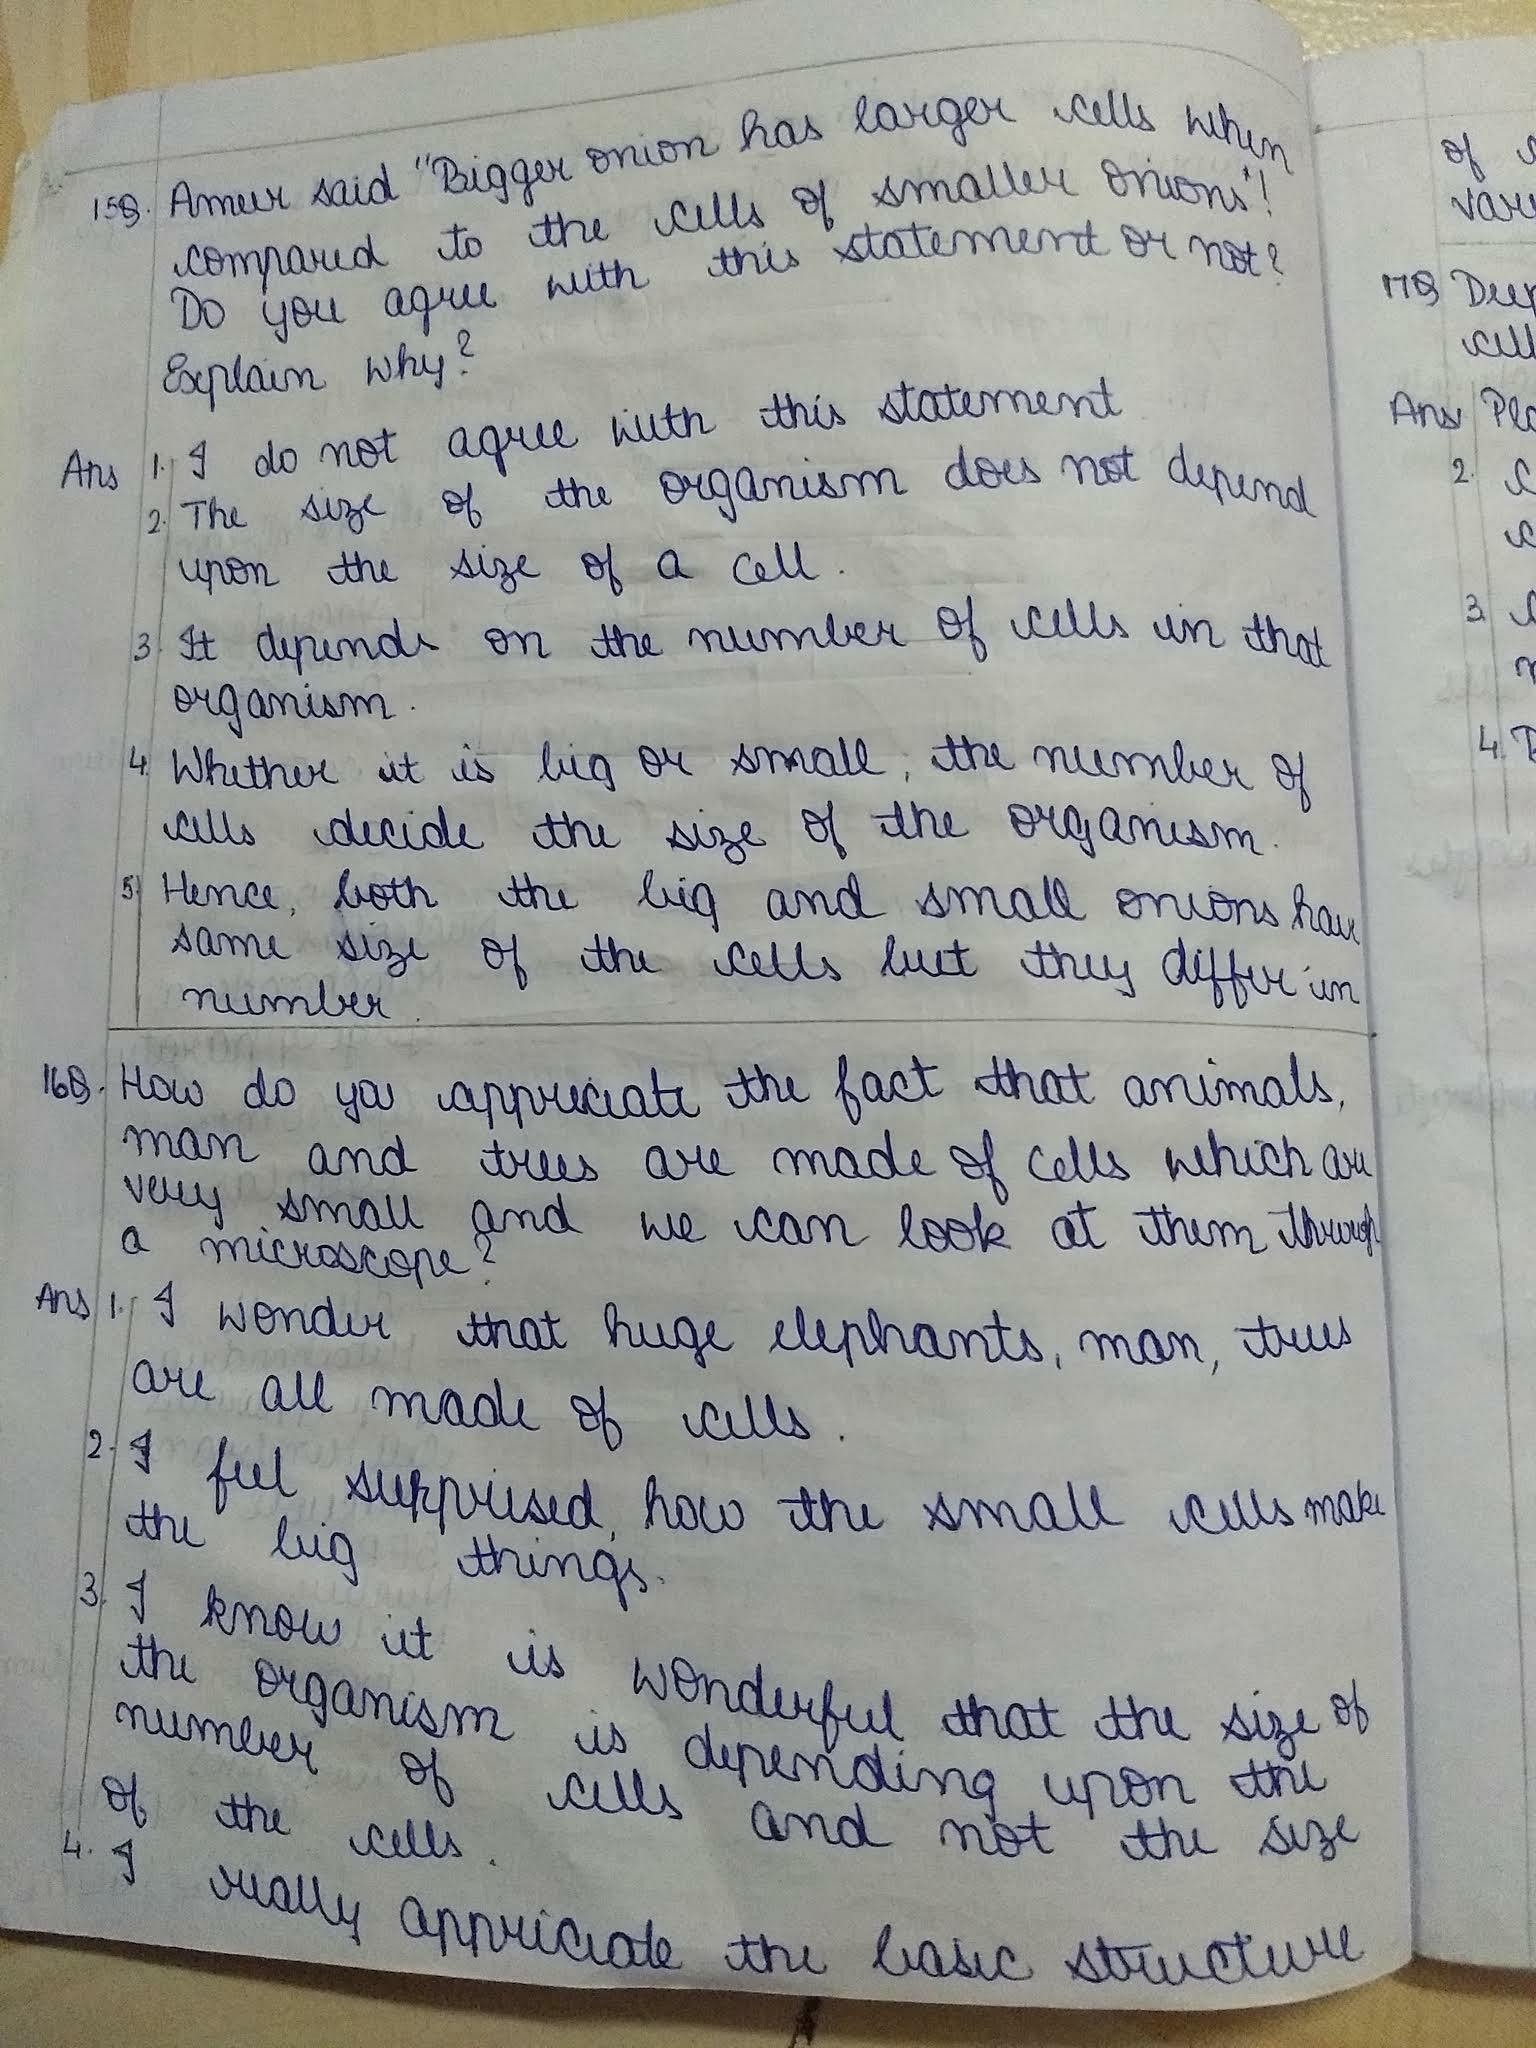 15Q. Ameer said "Bigger onion has larger cells when
compared to the cells of smaller onions"!
Do you agree with this statement or not?
Explain why?
Ans 1. I do not agree with this statement
2. The size of the organism does not depend
upon the size of a cell.
3. It depends on the number of cells in that
organism.
4. Whether it is big or small, the number of
cells decide the size of the organism.
5) Hence, both the big and small onions have
same size of the cells but they differ in
number.
16Q. How do you appreciate the fact that animals,
man and trees are made of cells which are
very small and we can look at them through
a microscope?
Ans 1. I wonder that huge elephants, man, trees
are all made of cells.
2. I feel surprised, how the small cells make
the big things.
3. I know it is wonderful that the size of
the organism is depending upon the
number of cells and not the size
of the cells.
4. I really appriciate the basic structure
of
vari
17Q
cell
Ans
2.
3.
4.